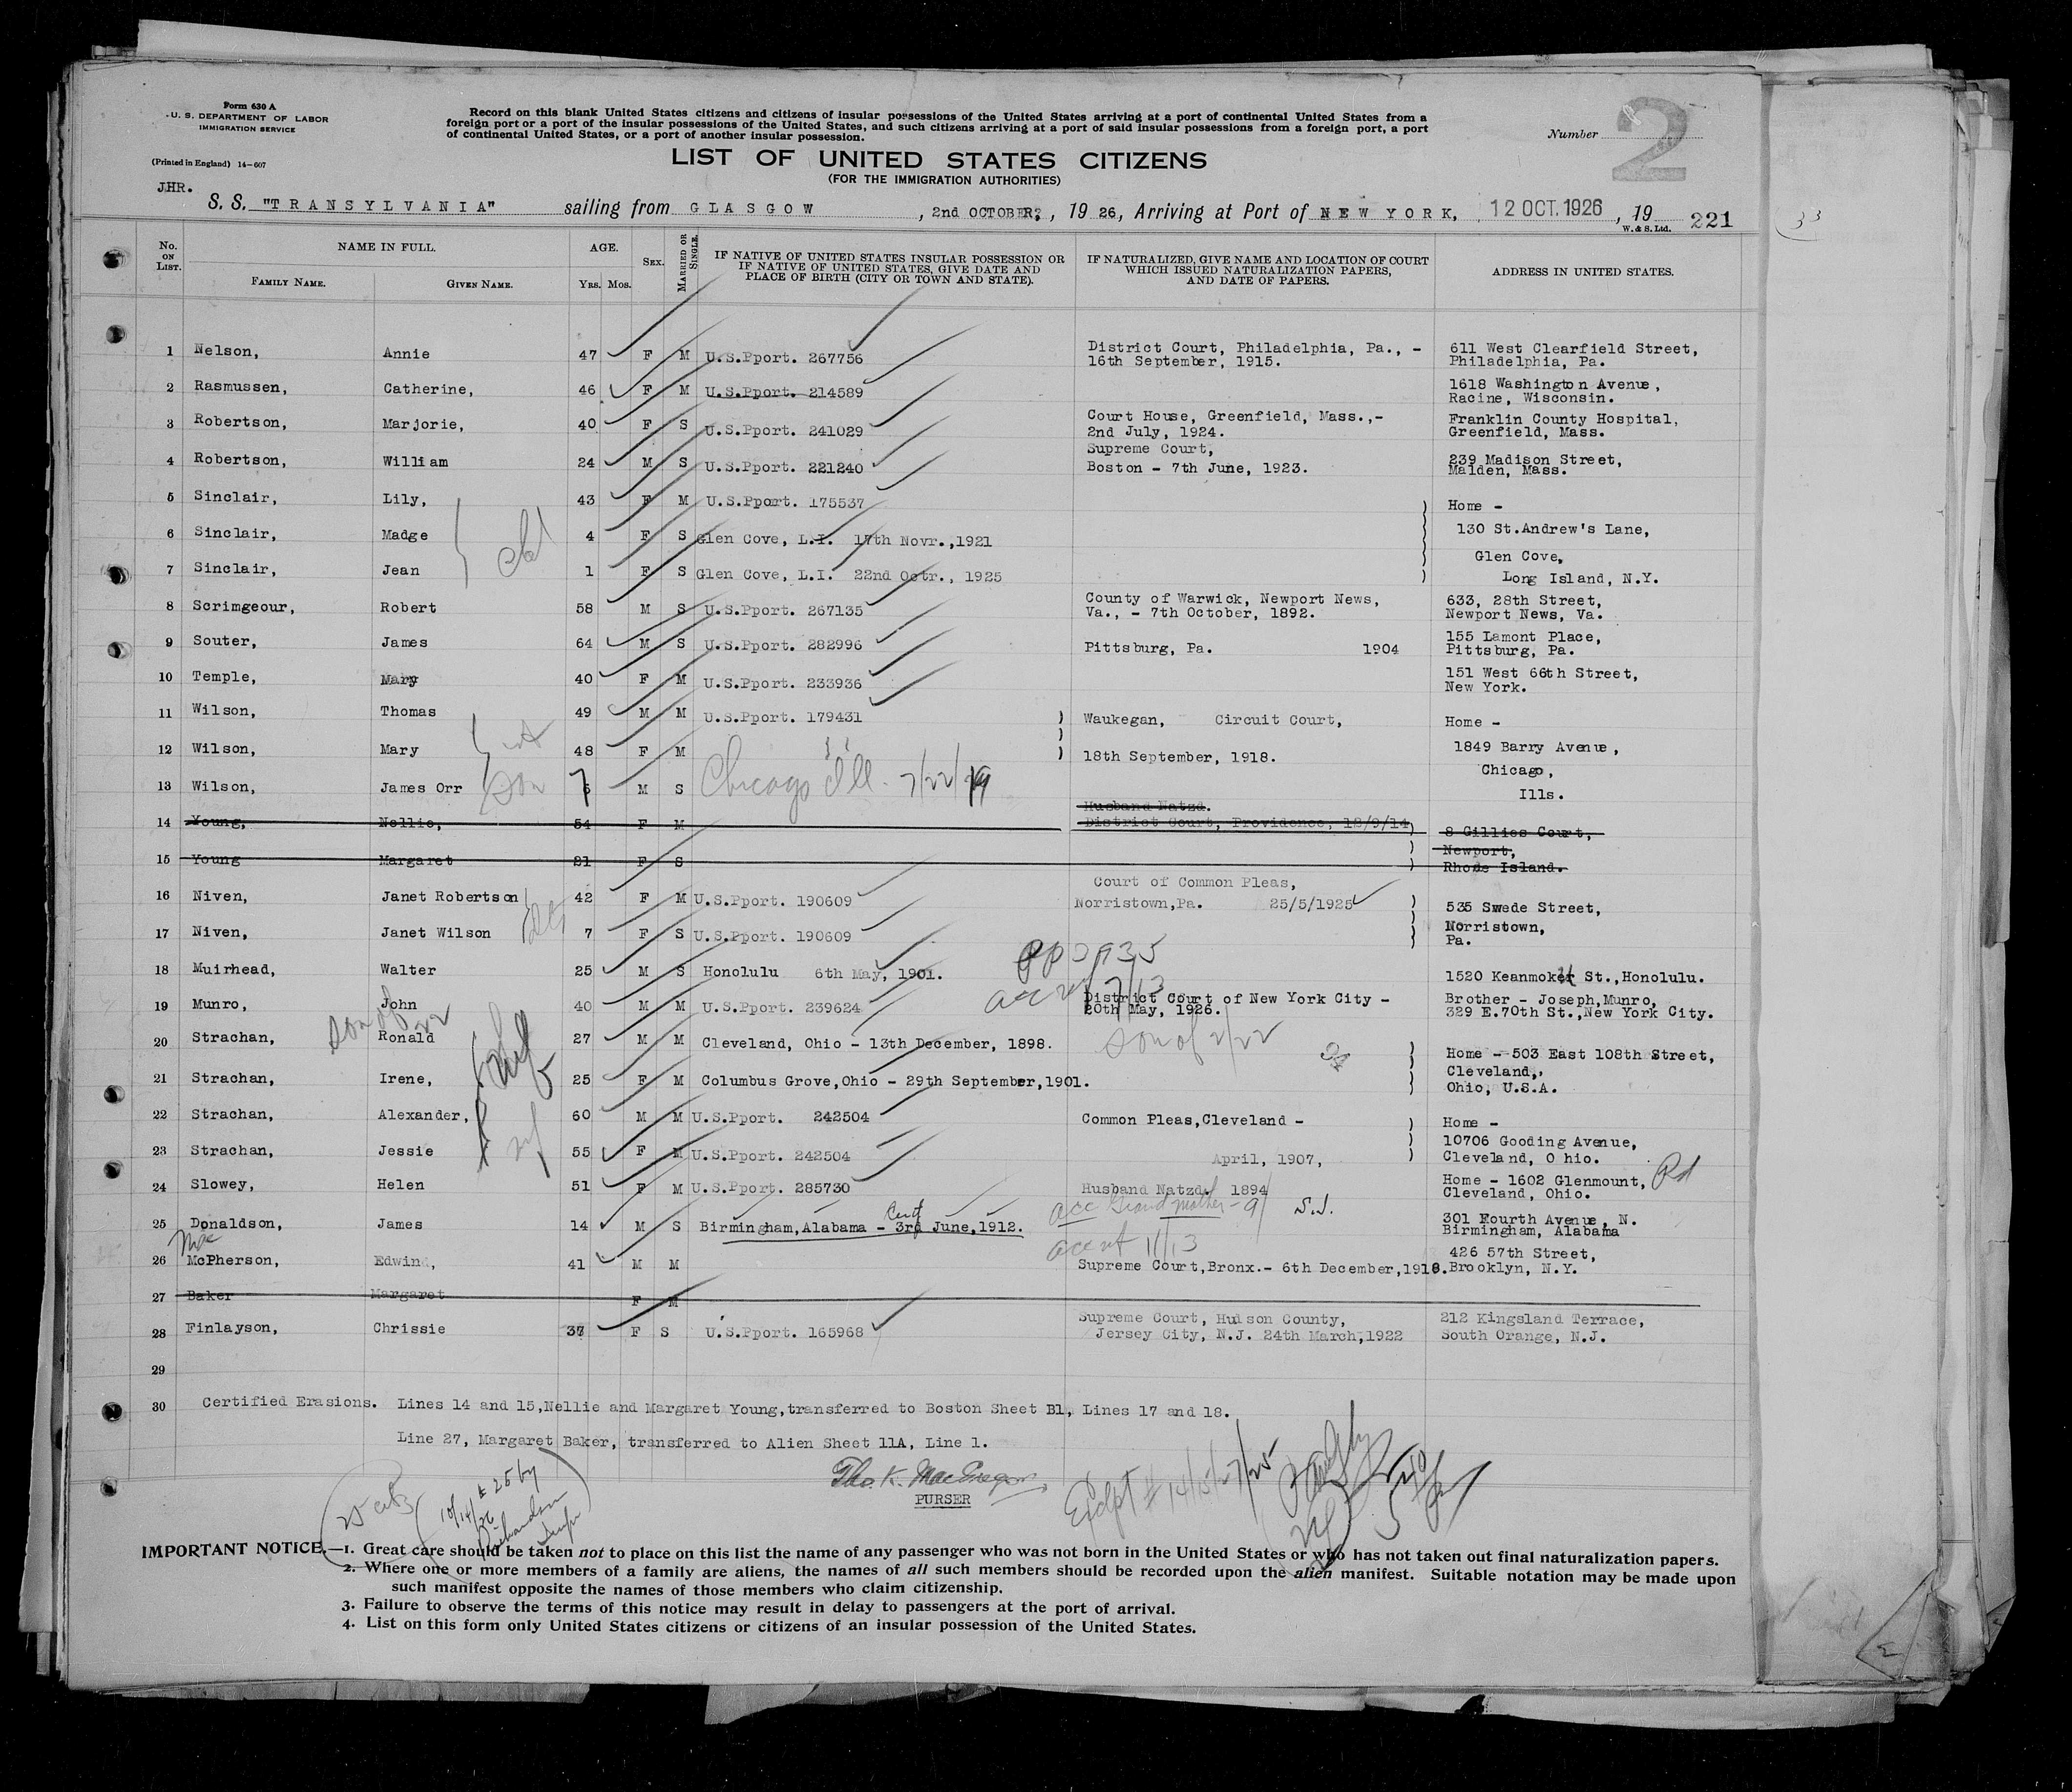 Form 630 A
U. S. DEPARTMENT OF LABOR
IMMIGRATION SERVICE
(Printed in England) 14-607
JHR.
Record on this blank United States citizens and citizens of insular possessions of the United States arriving at a port of continental United States from a
foreign port or a port of the insular possessions of the United States, and such citizens arriving at a port of said insular possessions from a foreign port, a port
of continental United States, or a port of another insular possession.
Number 2
LIST OF UNITED STATES CITIZENS
(FOR THE IMMIGRATION AUTHORITIES)
S. S. "TRANSYLVANIA" sailing from GLASGOW, 2nd OCTOBER, 1926, Arriving at Port of NEW YORK, 12 OCT. 1926, 19
W. & S. Ltd. 221
No. ON LIST. NAME IN FULL. FAMILY NAME. GIVEN NAME. AGE. Yrs. Mos. SEX. MARRIED OR SINGLE. IF NATIVE OF UNITED STATES INSULAR POSSESSION OR IF NATIVE OF UNITED STATES, GIVE DATE AND PLACE OF BIRTH (CITY OR TOWN AND STATE). IF NATURALIZED, GIVE NAME AND LOCATION OF COURT WHICH ISSUED NATURALIZATION PAPERS, AND DATE OF PAPERS. ADDRESS IN UNITED STATES.
1 Nelson, Annie 47 F M U.S.Pport. 267756 District Court, Philadelphia, Pa., - 16th September, 1915. 611 West Clearfield Street, Philadelphia, Pa.
2 Rasmussen, Catherine, 46 F M U.S.Pport. 214589 1618 Washington Avenue, Racine, Wisconsin.
3 Robertson, Marjorie, 40 F S U.S.Pport. 241029 Court House, Greenfield, Mass.,- 2nd July, 1924. Franklin County Hospital, Greenfield, Mass.
4 Robertson, William 24 M S U.S.Pport. 221240 Supreme Court, Boston - 7th June, 1923. 239 Madison Street, Malden, Mass.
5 Sinclair, Lily, 43 F M U.S.Pport. 175537 Home -
6 Sinclair, Madge 4 F S Glen Cove, L.I. 17th Novr.,1921 130 St.Andrew's Lane, Glen Cove,
7 Sinclair, Jean 1 F S Glen Cove, L.I. 22nd Octr., 1925 Long Island, N.Y.
8 Scrimgeour, Robert 58 M S U.S.Pport. 267135 County of Warwick, Newport News, Va., - 7th October, 1892. 633, 28th Street, Newport News, Va.
9 Souter, James 64 M S U.S.Pport. 282996 Pittsburg, Pa. 1904 155 Lamont Place, Pittsburg, Pa.
10 Temple, Mary 40 F M U.S.Pport. 233936 151 West 66th Street, New York.
11 Wilson, Thomas 49 M M U.S.Pport. 179431 Waukegan, Circuit Court, Home -
12 Wilson, Mary 48 F M 18th September, 1918. 1849 Barry Avenue, Chicago,
13 Wilson, James Orr son 7 M S Chicago Ill. 7/22/19 Ills.
14 Young, Nellie, 54 F M Husband Natzd. District Court, Providence, 18/9/14 8 Gillies Court, Newport,
15 Young Margaret 21 F S Rhode Island.
16 Niven, Janet Robertson 42 F M U.S.Pport. 190609 Court of Common Pleas, Norristown,Pa. 25/5/1925 535 Swede Street,
17 Niven, Janet Wilson 7 F S U.S.Pport. 190609 Norristown, Pa.
18 Muirhead, Walter 25 M S Honolulu 6th May, 1901. 1520 St.,Honolulu.
19 Munro, John 40 M M U.S.Pport. 239624 District Court of New York City - 20th May, 1926. Brother - Joseph,Munro, 329 E.70th St.,New York City.
20 Strachan, Ronald son of 22 27 M M Cleveland, Ohio - 13th December, 1898. son of 2/22 Home - 503 East 108th Street,
21 Strachan, Irene, 25 F M Columbus Grove,Ohio - 29th September,1901. Cleveland,, Ohio, U.S.A.
22 Strachan, Alexander, 60 M M U.S.Pport. 242504 Common Pleas,Cleveland - Home -
23 Strachan, Jessie 55 F M U.S.Pport. 242504 April, 1907, 10706 Gooding Avenue, Cleveland, Ohio.
24 Slowey, Helen 51 F M U.S.Pport. 285730 Husband Natzd. 1894 Home - 1602 Glenmount, Rd Cleveland, Ohio.
25 Donaldson, James 14 M S Birmingham,Alabama - 3rd June,1912. Cert acc Grandmother 301 Fourth Avenue, N. Birmingham, Alabama
26 McPherson, Mac Edwin, 41 M M Supreme Court,Bronx.- 6th December,1918. 426 57th Street, Brooklyn, N.Y.
27 Baker Margaret F M
28 Finlayson, Chrissie 37 F S U.S.Pport. 165968 Supreme Court, Hudson County, Jersey City, N.J. 24th March,1922 212 Kingsland Terrace, South Orange, N.J.
29
30 Certified Erasions. Lines 14 and 15,Nellie and Margaret Young,transferred to Boston Sheet B1, Lines 17 and 18.
Line 27, Margaret Baker, transferred to Alien Sheet 11A, Line 1.
Tho. K. MacGregor
PURSER
IMPORTANT NOTICE.—1. Great care should be taken not to place on this list the name of any passenger who was not born in the United States or who has not taken out final naturalization papers.
2. Where one or more members of a family are aliens, the names of all such members should be recorded upon the alien manifest. Suitable notation may be made upon
such manifest opposite the names of those members who claim citizenship.
3. Failure to observe the terms of this notice may result in delay to passengers at the port of arrival.
4. List on this form only United States citizens or citizens of an insular possession of the United States.